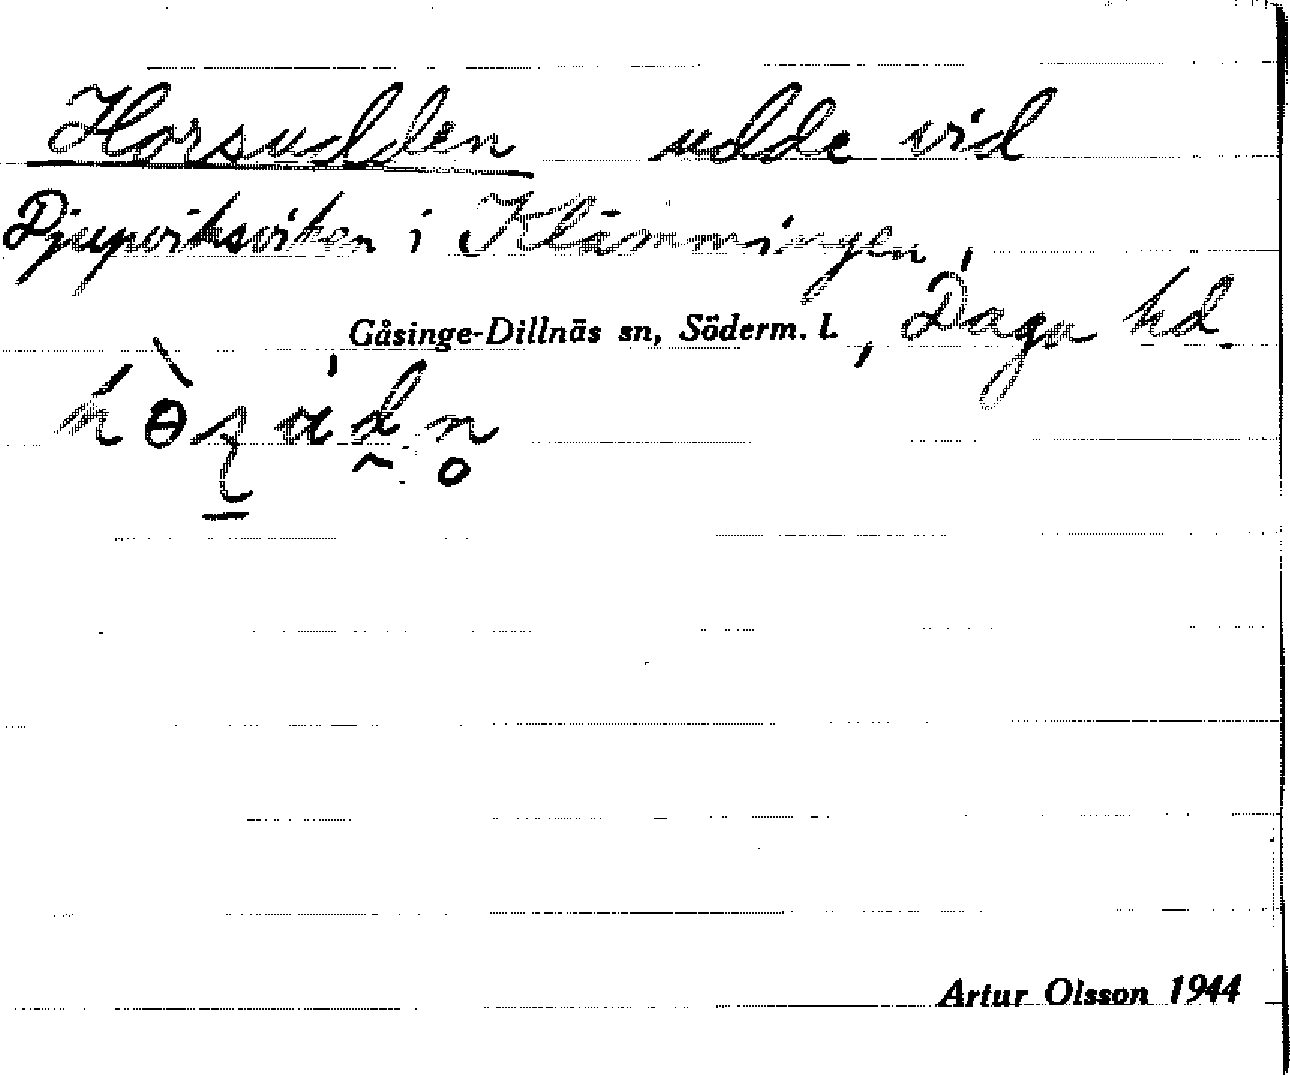 Horsudden udde vid
Djupviksviken i Klämmingen,
Gåsinge-Dillnäs sn, Söderm. l., Daga hd.
Artur Olsson 1944